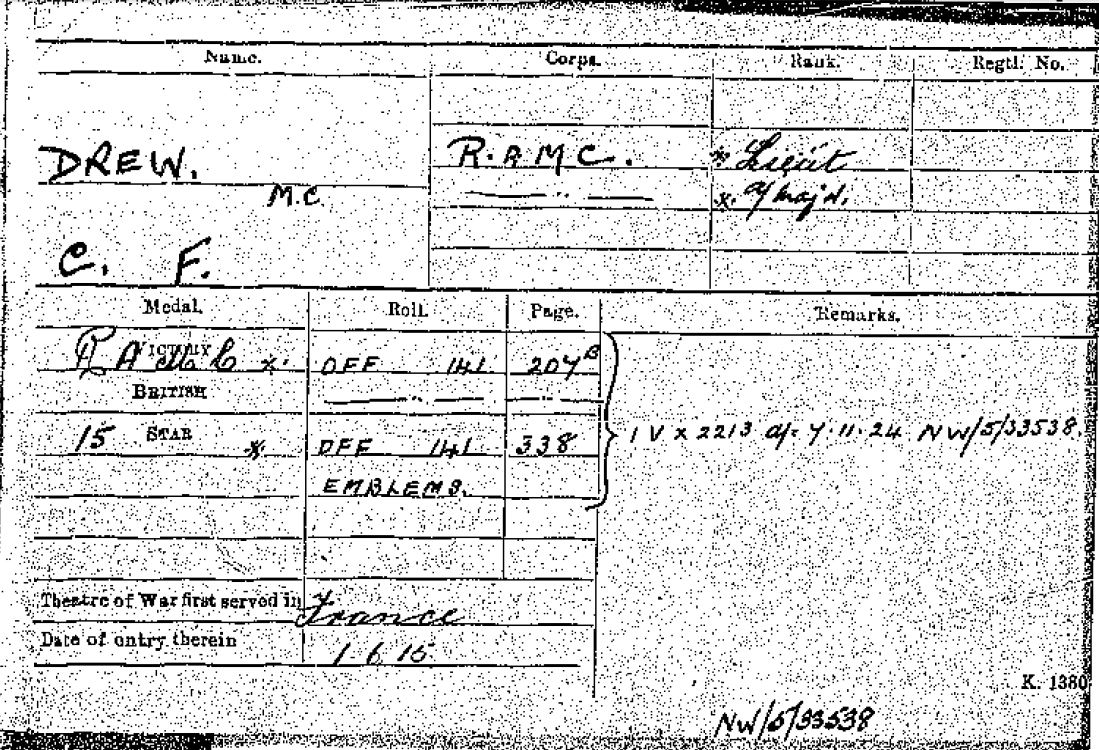 Name. Corps. Rank. Regtl. No.
DREW. R.A.M.C. * Lieut
M.C. —— " —— x. a/Maj'r.
C. F.
Medal. Roll. Page. Remarks.
VICTORY R A M C x. OFF 141 207B
BRITISH —— " —— — " —
15 STAR * OFF 141 338 } IV x 2213 d/- 7.11.24 NW/5/33538.
EMBLEMS.
Theatre of War first served in France
Date of entry therein 1.6.15.
K. 1380
NW/5/33538